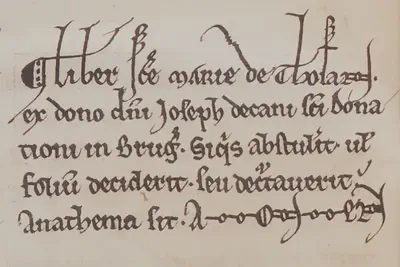 ¶ Liber sc̄e marie de Thosan.
ex dono dn̄i Joseph decani sc̄i Dona
tiani in Brug̉. Siq̇s abstulit̉. ul̉
foliū deciderit. seu dec̄tauerit
Anathema sit. A—o—o